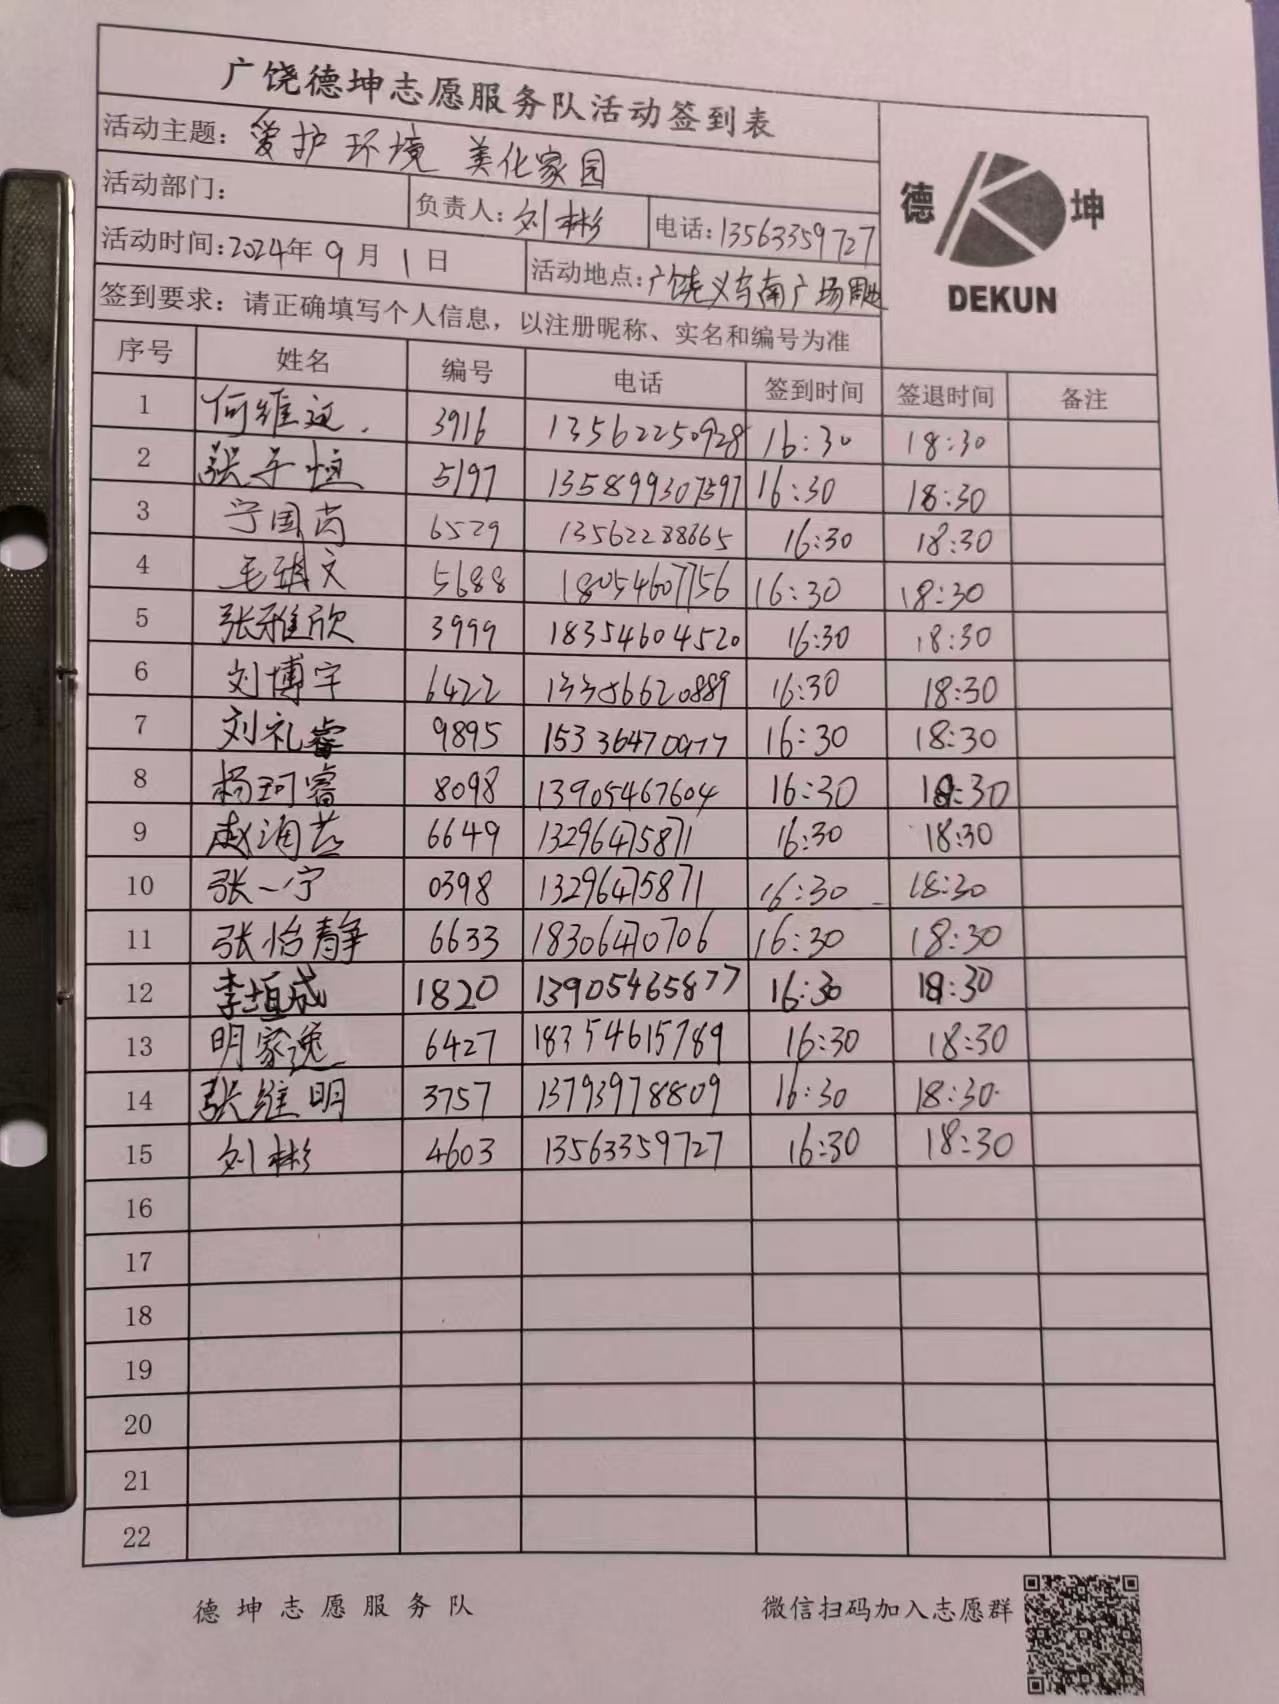 广饶德坤志愿服务队活动签到表
活动主题：爱护环境 美化家园
德 坤
DEKUN
活动部门： 负责人：刘彬 电话：13563359727
活动时间：2024年9月1日 活动地点：广饶义乌南广场周边
签到要求：请正确填写个人信息，以注册昵称、实名和编号为准
序号 姓名 编号 电话 签到时间 签退时间 备注
1 何维 3916 13562250928 16:30 18:30
2 张子恒 5197 135899307597 16:30 18:30
3 宁国芮 6529 13562288665 16:30 18:30
4 毛琪文 5688 18054607756 16:30 18:30
5 张雅欣 3999 18354604520 16:30 18:30
6 刘博宇 6422 13356620889 16:30 18:30
7 刘礼睿 9895 15336470977 16:30 18:30
8 杨珂睿 8098 13905467604 16:30 18:30
9 赵润 6649 13296475871 16:30 18:30
10 张一宁 0398 13296475871 16:30 18:30
11 张怡静 6633 18306470706 16:30 18:30
12 李垣成 1820 13905465877 16:30 18:30
13 明家逸 6427 18354615789 16:30 18:30
14 张维明 3757 13793978809 16:30 18:30
15 刘彬 4603 13563359727 16:30 18:30
16
17
18
19
20
21
22
德坤志愿服务队 微信扫码加入志愿群